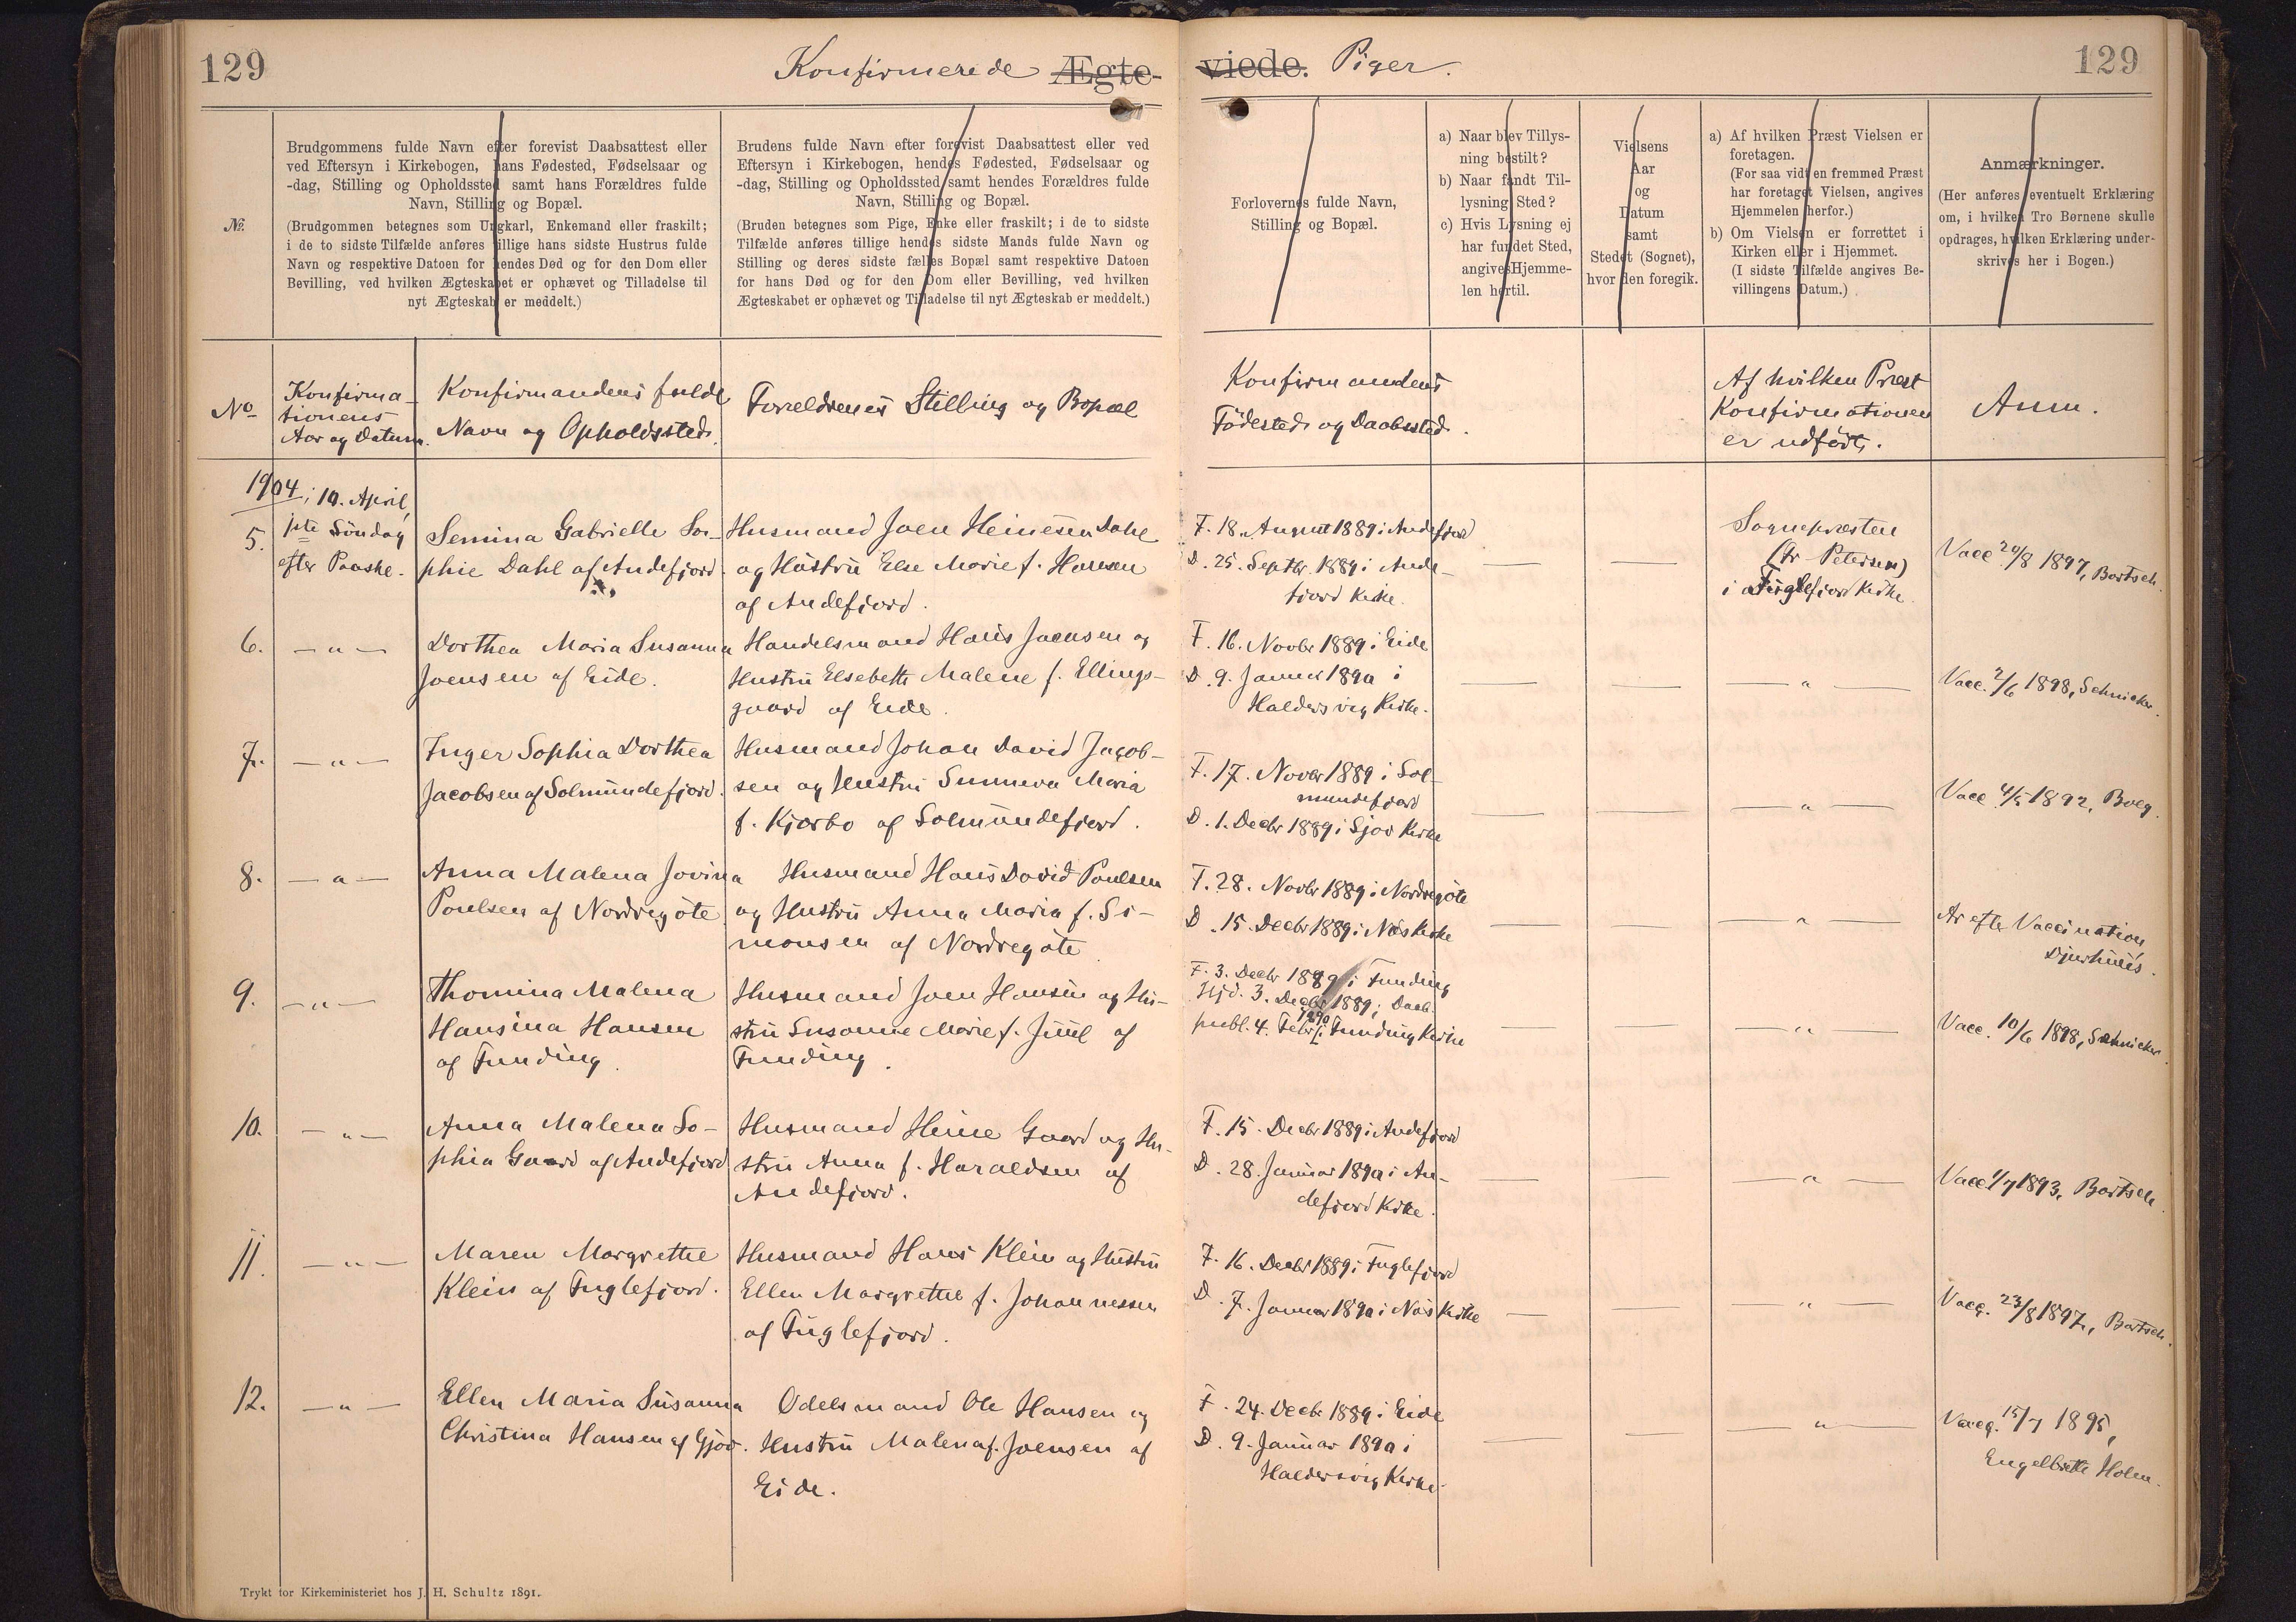 129
Konfirmerede Ægte-
viede. Piger.
129
№.
Brudgommens fulde Navn efter forevist Daabsattest eller
ved Eftersyn i Kirkebogen, hans Fødested, Fødselsaar og
-dag, Stilling og Opholdssted samt hans Forældres fulde
Navn, Stilling og Bopæl.
(Brudgommen betegnes som Ungkarl, Enkemand eller fraskilt;
i de to sidste Tilfælde anføres tillige hans sidste Hustrus fulde
Navn og respektive Datoen for hendes Død og for den Dom eller
Bevilling, ved hvilken Ægteskabet er ophævet og Tilladelse til
nyt Ægteskab er meddelt.)
Brudens fulde Navn efter forevist Daabsattest eller ved
Eftersyn i Kirkebogen, hendes Fødested, Fødselsaar og
-dag, Stilling og Opholdssted samt hendes Forældres fulde
Navn, Stilling og Bopæl.
(Bruden betegnes som Pige, Enke eller fraskilt; i de to sidste
Tilfælde anføres tillige hendes sidste Mands fulde Navn og
Stilling og deres sidste fælles Bopæl samt respektive Datoen
for hans Død og for den Dom eller Bevilling, ved hvilken
Ægteskabet er ophævet og Tilladelse til nyt Ægteskab er meddelt.)
Forlovernes fulde Navn,
Stilling og Bopæl.
a) Naar blev Tillys-
ning bestilt?
b) Naar fandt Til-
lysning Sted?
c) Hvis Lysning ej
har fundet Sted,
angives Hjemme-
len hertil.
Vielsens
Aar
og
Datum
samt
Stedet (Sognet),
hvor den foregik.
a) Af hvilken Præst Vielsen er
foretagen.
(For saa vidt en fremmed Præst
har foretaget Vielsen, angives
Hjemmelen herfor.)
b) Om Vielsen er forrettet i
Kirken eller i Hjemmet.
(I sidste Tilfælde angives Be-
villingens Datum.)
Anmærkninger.
(Her anføres eventuelt Erklæring
om, i hvilken Tro Børnene skulle
opdrages, hvilken Erklæring under-
skrives her i Bogen.)
No
Konfirma-
tionens
Aar og Datum.
Konfirmandens fulde
Navn og Opholdssted.
Forældrenes Stilling og Bopæl
Konfirmandens
Födested og Daabssted.
Af hvilken Præst
Konfirmationen
er udfört.
Anm.
1904, 10. April,
5.
1ste Söndag
efter Paaske.
Semina Gabrielle So-
phie Dahl af Andefjord.
Husmand Joen Heinesen Dahl
og Hustru Else Marie f. Hansen
af Andefjord.
F. 18. August 1889 i Andefjord
D. 25. Septbr. 1889 i Ande-
fjord Kirke.
Sognepræsten
(Fr. Petersen)
i Fuglefjord Kirke
Vacc. 20/8 1897, Bartsch.
6.
— " —
Dorthea Maria Susanna
Joensen af Eide.
Handelsmand Hans Joensen og
Hustru Elsebeth Malene f. Ellings-
gaard af Eide.
F. 16. Novbr 1889 i Eide
D. 9. Januar 1890 i
Haldersvig Kirke.
— " —
Vacc. 2/6 1898, Schnicker.
7.
— " —
Inger Sophia Dorthea
Jacobsen af Solmundefjord.
Husmand Johan David Jacob-
sen og Hustru Sunneva Maria
f. Kjærbo af Solmundefjord.
F. 17. Novbr 1889 i Sol-
mundefjord
D. 1. Decbr 1889 i Sjov Kirke
— " —
Vacc. 4/5 1892, Boeg.
8.
— " —
Anna Malena Jovina
Poulsen af Nordregöte
Husmand Hans David Poulsen
og Hustru Anna Maria f. Si-
monsen af Nordregöte
F. 28. Novbr 1889 i Nordregöte
D. 15. Decbr 1889 i Næs Kirke
— " —
Ar efter Vaccination,
Djurhuus.
9.
— " —
Thomina Malena
Hansina Hansen
af Funding.
Husmand Joen Hansen og Hu-
stru Susanne Marie f. Juul af
Funding.
F. 3. Decbr 1889 i Funding
Hjd. 3. Decbr 1889; Daab.
publ. 4. Febr 1890 i Funding Kirke
— " —
Vacc. 10/6 1898, Schnicker.
10.
— " —
Anna Malena So-
phia Gaard af Andefjord
Husmand Heine Gaard og Hu-
stru Anna f. Haraldsen af
Andefjord.
F. 15. Decbr 1889 i Andefjord
D. 28. Januar 1890 i An-
defjord Kirke.
— " —
Vacc. 1/7 1893, Bartsch.
11.
— " —
Maren Margrethe
Klein af Fuglefjord.
Husmand Hans Klein og Hustru
Ellen Margrethe f. Johannessen
af Fuglefjord.
F. 16. Decbr 1889 i Fuglefjord
D. 7. Januar 1890 i Næs Kirke
— " —
Vacc. 23/8 1897, Bartsch.
12.
— " —
Ellen Maria Susanna
Christina Hansen af Gjov.
Odelsmand Ole Hansen og
Hustru Malena f. Joensen af
Eide.
F. 24. Decbr 1889 i Eide
D. 9. Januar 1890 i
Haldersvig Kirke.
— " —
Vacc. 15/7 1895,
Engelbreth Holm.
Trykt for Kirkeministeriet hos J. H. Schultz 1891.